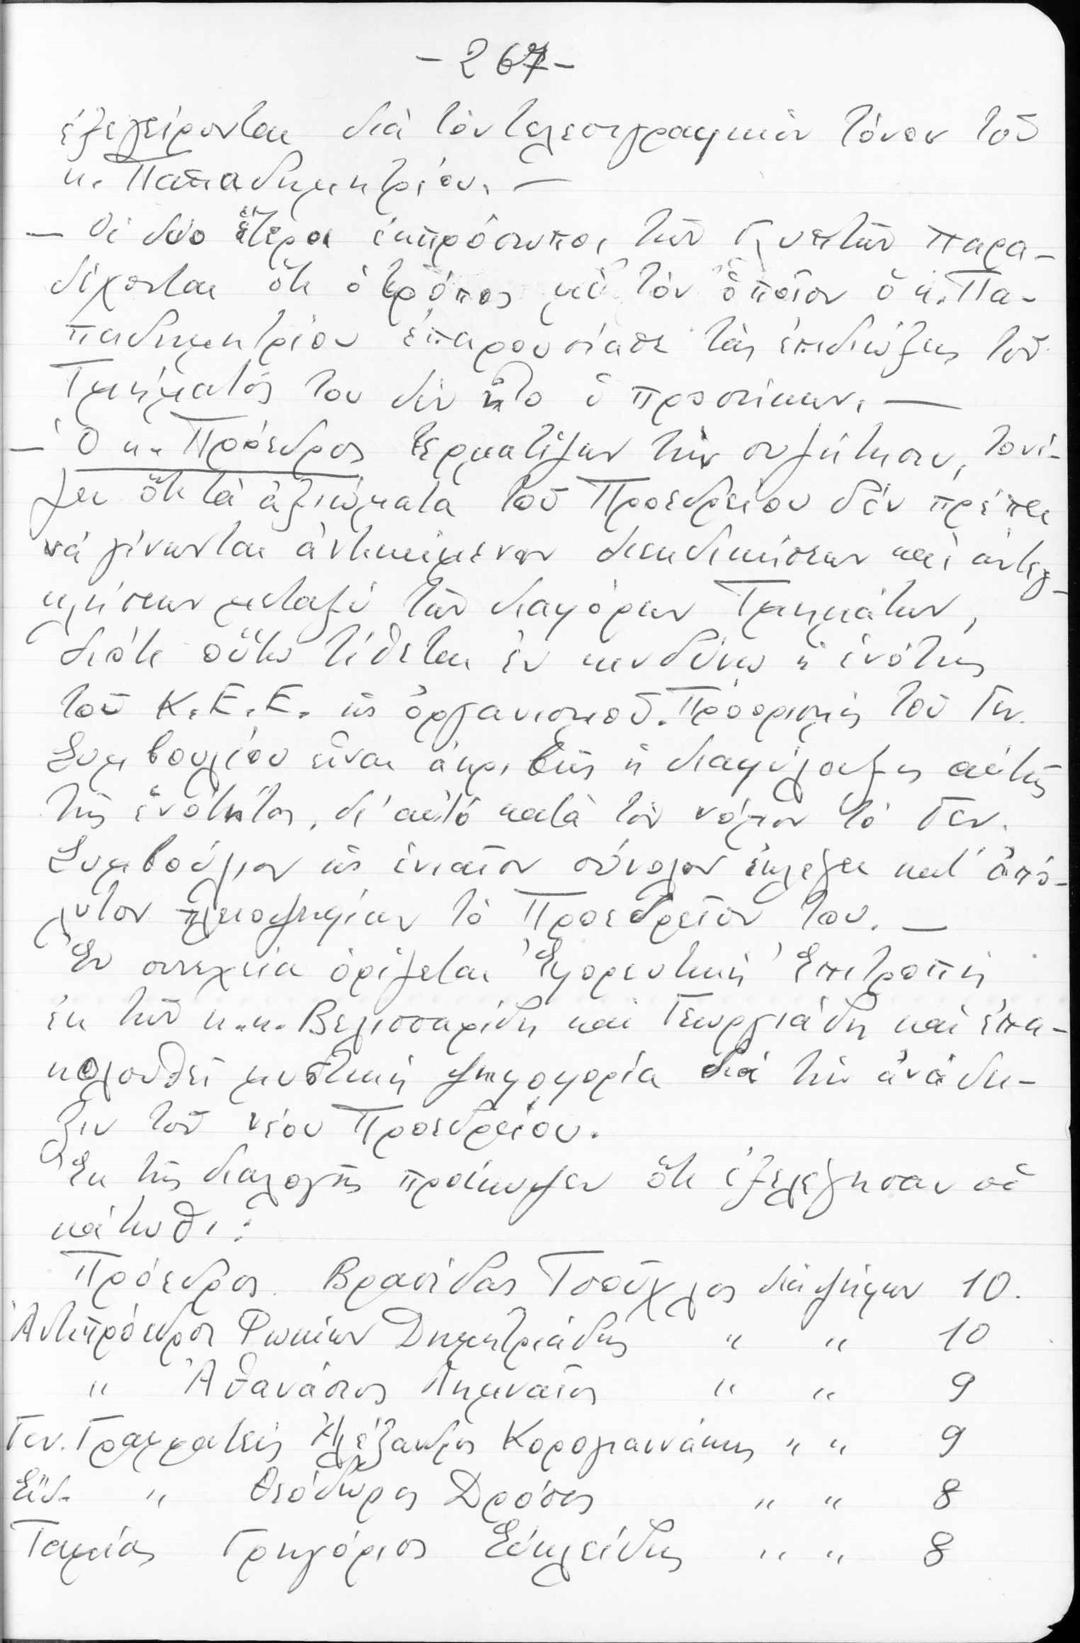 -267-
ἐξεγείρονται διὰ τὸν τελεσιγραφικὸν τόνον τοῦ
κ. Παπαδημητρίου. —
— Οἱ δύο ἕτεροι ἐκπρόσωποι τῶν Γλυπτῶν παρα-
δέχονται ὅτι ὁ τρόπος μὲ τὸν ὁποῖον ὁ κ. Πα-
παδημητρίου ἐπαρουσίασε τὰς ἐπιδιώξεις τοῦ
Τμήματός του δὲν ἦτο ὁ προσήκων. —
— Ὁ κ. Πρόεδρος τερματίζων τὴν συζήτησιν, τονί-
ζει ὅτι τὰ ἀξιώματα τοῦ Προεδρείου δὲν πρέπει
νὰ γίνωνται ἀντικείμενον διεκδικήσεων καὶ ἀντεγ-
κλήσεων μεταξὺ τῶν διαφόρων Τμημάτων,
διότι οὕτω τίθεται ἐν κινδύνῳ ἡ ἑνότης
τοῦ Κ.Ε.Ε. ὡς ὀργανισμοῦ. Προορισμὸς τοῦ Γεν.
Συμβουλίου εἶναι ἀκριβῶς ἡ διαφύλαξις αὐτῆς
τῆς ἑνότητος, δι' αὐτὸ κατὰ τὸν νόμον τὸ Γεν.
Συμβούλιον ὡς ἑνιαῖον σύνολον ἐκλέγει κατ' ἀπό-
λυτον πλειοψηφίαν τὸ Προεδρεῖον του. —
Ἐν συνεχείᾳ ὁρίζεται Ἐφορευτικὴ Ἐπιτροπὴ
ἐκ τῶν κ.κ. Βελισσαρίδη καὶ Γεωργιάδη καὶ ἐπα-
κολουθεῖ μυστικὴ ψηφοφορία διὰ τὴν ἀνάδει-
ξιν τοῦ νέου Προεδρείου.
Ἐκ τῆς διαλογῆς προέκυψεν ὅτι ἐξελέγησαν οἱ
κάτωθι:
Πρόεδρος Βρασίδας Τσοῦχλος διὰ ψήφων 10.
Ἀντιπρόεδροι Φωκίων Δημητριάδης " " 10
" Ἀθανάσιος Λημναῖος " " 9
Γεν. Γραμματεὺς Ἀλέξανδρος Κορογιαννάκης " " 9
Εἰδ. " Θεόδωρος Δρόσος " " 8
Ταμίας Γρηγόριος Εὐκλείδης " " 8